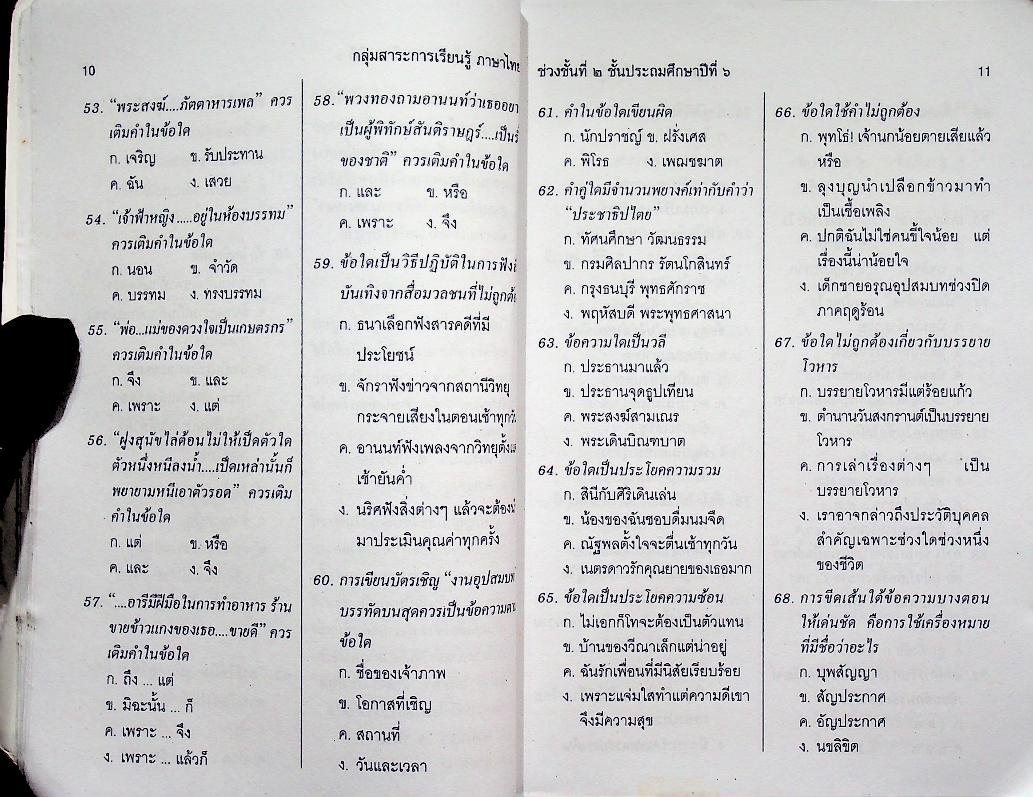 10
กลุ่มสาระการเรียนรู้ ภาษาไทย
53. “พระสงฆ์....ภัตตาหารเพล” ควร
เติมคำในข้อใด
ก. เจริญ ข. รับประทาน
ค. ฉัน ง. เสวย
54. “เจ้าฟ้าหญิง.....อยู่ในห้องบรรทม”
ควรเติมคำในข้อใด
ก. นอน ข. จำวัด
ค. บรรทม ง. ทรงบรรทม
55. “พ่อ...แม่ของดวงใจเป็นเกษตรกร”
ควรเติมคำในข้อใด
ก. จึง ข. และ
ค. เพราะ ง. แต่
56. “ฝูงสุนัขไล่ต้อนไม่ให้เป็ดตัวใด
ตัวหนึ่งหนีลงน้ำ....เป็ดเหล่านั้นก็
พยายามหนีเอาตัวรอด” ควรเติม
คำในข้อใด
ก. แต่ ข. หรือ
ค. และ ง. จึง
57. “....อารีมีฝีมือในการทำอาหาร ร้าน
ขายข้าวแกงของเธอ....ขายดี” ควร
เติมคำในข้อใด
ก. ถึง ... แต่
ข. มิฉะนั้น ... ก็
ค. เพราะ ... จึง
ง. เพราะ ... แล้วก็
58. “พวงทองถามอานนท์ว่าเธออยา
เป็นผู้พิทักษ์สันติราษฎร์....เป็น
ของชาติ” ควรเติมคำในข้อใด
ก. และ ข. หรือ
ค. เพราะ ง. จึง
59. ข้อใดเป็นวิธีปฏิบัติในการฟัง
บันเทิงจากสื่อมวลชนที่ไม่ถูกต้
ก. ธนาเลือกฟังสารคดีที่มี
ประโยชน์
ข. จักราฟังข่าวจากสถานีวิทยุ
กระจายเสียงในตอนเช้าทุกวั
ค. อานนท์ฟังเพลงจากวิทยุตั้งแ
เช้ายันค่ำ
ง. นริศฟังสิ่งต่างๆ แล้วจะต้อง
มาประเมินคุณค่าทุกครั้ง
60. การเขียนบัตรเชิญ “งานอุปสมบท
บรรทัดบนสุดควรเป็นข้อความ
ข้อใด
ก. ชื่อของเจ้าภาพ
ข. โอกาสที่เชิญ
ค. สถานที่
ง. วันและเวลา
ช่วงชั้นที่ ๒ ชั้นประถมศึกษาปีที่ ๖
11
61. คำในข้อใดเขียนผิด
ก. นักปราชญ์ ข. ฝรั่งเศส
ค. พิโรธ ง. เพฌชฆาต
62. คำคู่ใดมีจำนวนพยางค์เท่ากับคำว่า
“ประชาธิปไตย”
ก. ทัศนศึกษา วัฒนธรรม
ข. กรมศิลปากร รัตนโกสินทร์
ค. กรุงธนบุรี พุทธศักราช
ง. พฤหัสบดี พระพุทธศาสนา
63. ข้อความใดเป็นวลี
ก. ประธานมาแล้ว
ข. ประธานจุดธูปเทียน
ค. พระสงฆ์สามเณร
ง. พระเดินบิณฑบาต
64. ข้อใดเป็นประโยคความรวม
ก. สินีกับศิริเดินเล่น
ข. น้องของฉันชอบดื่มนมจืด
ค. ณัฐพลตั้งใจจะตื่นเช้าทุกวัน
ง. เนตรดาวรักคุณยายของเธอมาก
65. ข้อใดเป็นประโยคความซ้อน
ก. ไม่เอกก็โทจะต้องเป็นตัวแทน
ข. บ้านของวีณาเล็กแต่น่าอยู่
ค. ฉันรักเพื่อนที่มีนิสัยเรียบร้อย
ง. เพราะแจ่มใสทำแต่ความดีเขา
จึงมีความสุข
66. ข้อใดใช้คำไม่ถูกต้อง
ก. พุทโธ่! เจ้านกน้อยตายเสียแล้ว
หรือ
ข. ลุงบุญนำเปลือกข้าวมาทำ
เป็นเชื้อเพลิง
ค. ปกติฉันไม่ใช่คนขี้ใจน้อย แต่
เรื่องนี้น่าน้อยใจ
ง. เด็กชายอรุณอุปสมบทช่วงปิด
ภาคฤดูร้อน
67. ข้อใดไม่ถูกต้องเกี่ยวกับบรรยาย
โวหาร
ก. บรรยายโวหารมีแต่ร้อยแก้ว
ข. ตำนานวันสงกรานต์เป็นบรรยาย
โวหาร
ค. การเล่าเรื่องต่างๆ เป็น
บรรยายโวหาร
ง. เราอาจกล่าวถึงประวัติบุคคล
สำคัญเฉพาะช่วงใดช่วงหนึ่ง
ของชีวิต
68. การขีดเส้นใต้ข้อความบางตอน
ให้เด่นชัด คือการใช้เครื่องหมาย
ที่มีชื่อว่าอะไร
ก. บุพสัญญา
ข. สัญประกาศ
ค. อัญประกาศ
ง. นขลิขิต